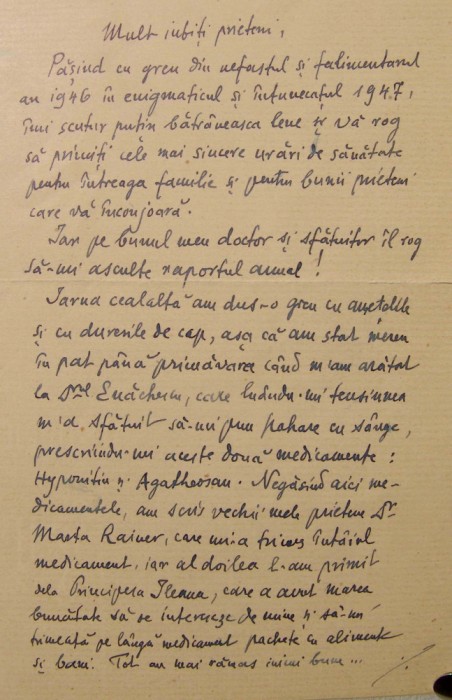 Mult iubiți prieteni,
Pășind cu greu din nefastul și falimentarul
an 1946 în enigmaticul și întunecatul 1947,
îmi scutur puțin bătrâneasca lene și vă rog
să primiți cele mai sincere urări de sănătate
pentru întreaga familie și pentru bunii prieteni
care vă înconjoară.
Iar pe bunul meu doctor și sfătuitor îl rog
să-mi asculte raportul anual!
Iarna cealaltă am dus-o greu cu amețelile
și cu durerile de cap, așa că am stat mereu
în pat până primăvara când m'am arătat
la Drul Enăchescu, care luându-mi tensiunea
m'a sfătuit să-mi pun pahare cu sânge,
prescriindu-mi aceste două medicamente:
Hypomitin și Agatheosan. Negăsind aici me-
dicamentele, am scris vechii mele prietene Dr
Marta Rainer, care mi-a trimes întâiul
medicament, iar al doilea l-am primit
dela Principesa Ileana, care a avut marea
bunătate să se intereseze de mine și să-mi
trimeată pe lângă medicament pachete cu alimente
și bani. Tot au mai rămas inimi bune...